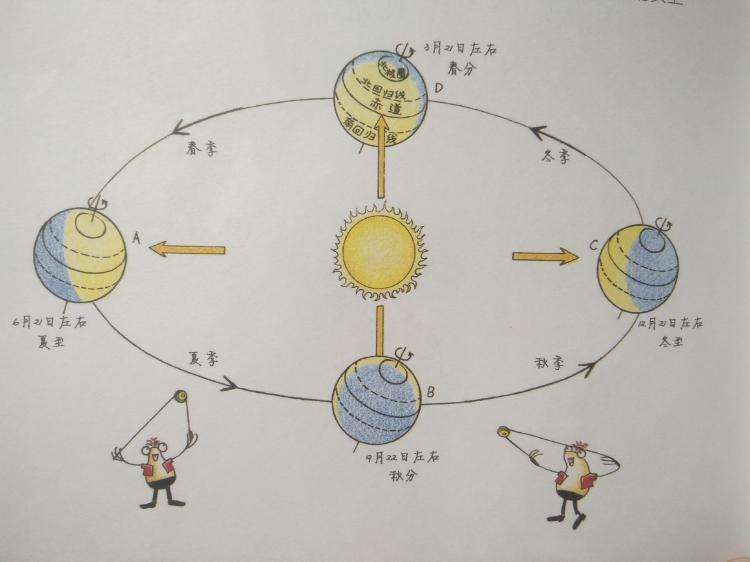 3月21日左右
春分
D
北极圈
北回归线
赤道
南回归线
春季
冬季
A
C
6月21日左右
夏至
12月21日左右
冬至
夏季
秋季
B
9月22日左右
秋分